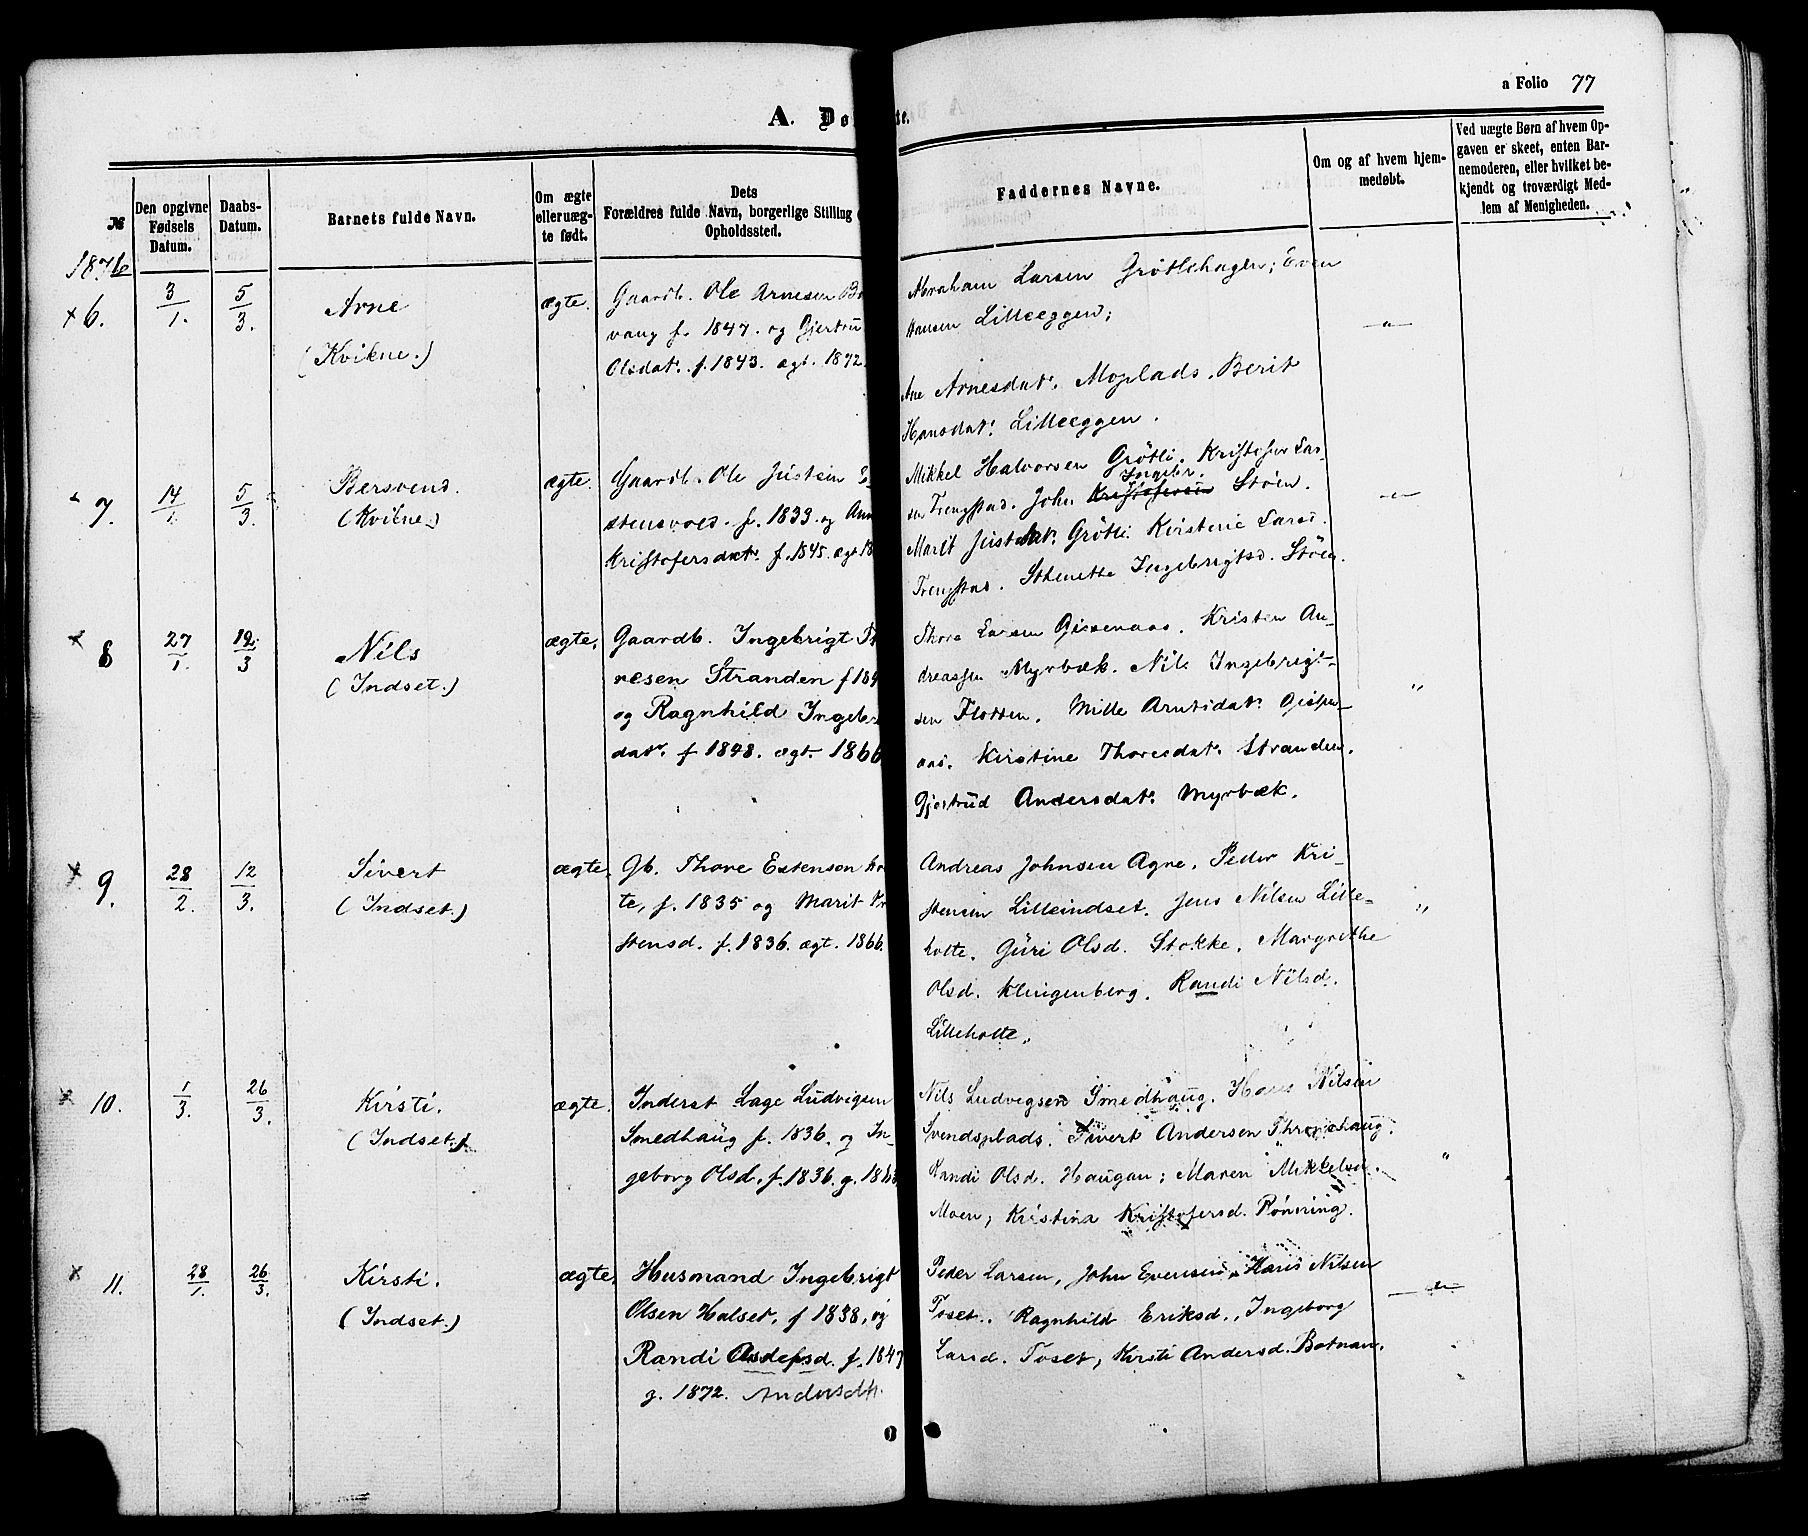 A. Dø te.
a Folio 77
№
Den opgivne Fødsels Datum.
Daabs-Datum.
Barnets fulde Navn.
Om ægte eller uæg-te født.
Dets
Forældres fulde Navn, borgerlige Stilling
Opholdssted.
Faddernes Navne.
Om og af hvem hjem-
medøbt.
Ved uægte Børn af hvem Op-
gaven er skeet, enten Bar-
nemoderen, eller hvilket be-
kjendt og troværdigt Med-
lem af Menigheden.
1876
× 6. 3/1. 5/3. Arne
(Kvikne.)
ægte.
Gaardb. Ole Arnesen
vang f. 1847. og Gjertru
Olsdatr. f. 1843. ægt. 1872.
Abraham Larsen Grötlehagen; Even
Hansen Lilleeggen;
Ane Arnesdatr. Moplads. Berit
Hansdatr. Lilleeggen.
7. 14/1. 5/3. Bersvend.
(Kvikne.)
ægte.
Gaardb. Ole Justsen E-
stensvold. f. 1833. og Ann
Kristofersdatr. f. 1845. ægt 18
Mikkel Halvorsen Grötli. Kristofer Lar-
sen Trengstad. John Kristofersen Ingebr. Stöen.
Marit Justdatr. Grötli. Kirstine Larsd.
Trengstad. Stenette Ingebrigtsd. Stöen.
8 27/1. 12/3 Nils
(Indset.)
ægte.
Gaardb. Ingebrigt
resen Stranden f 184
og Ragnhild Ingebr
datr. f 1848. ægt. 1866
Thore Larsen Gissenaas. Kristen An-
dreassen Myrbæk. Nils Ingebrigt-
sen Flotten. Mille Arntsdatr. Gissen-
aas. Kirstine Thoresdatr. Stranden.
Gjertrud Andersdatr. Myrbæk.
9. 28/2. 12/3. Sivert
(Indset.)
ægte.
Gb. Thore Estensen
te, f. 1835 og Marit Kr
stensd. f. 1836. ægt. 1866.
Andreas Johnsen Agne. Peder Kri-
stensen Lilleindset. Jens Nilsen Lille-
holte. Guri Olsd. Stokke. Margrethe
Olsd. Klingenberg. Randi Nilsd.
Lilleholte.
10. 1/3. 26/3. Kirsti.
(Indset.)
ægte.
Inderst Lage Ludvigsen
Smedhaug f. 1836. og In-
geborg Olsd. f. 1836. g. 18
Nils Ludvigsen Smedhaug. Hans Nilsen
Svendsplads. Sivert Andersen Thronshaug.
Randi Olsd. Haugan; Maren Mikkelsd.
Moen; Kristina Kristofersd. Rönning.
× 11. 28/1. 26/3. Kirsti.
(Indset.)
ægte.
Husmand Ingebrigt
Olsen Halset, f 1838, og
Randi f. 1847
g. 1872. Andersdtr.
Peder Larsen, John Evensen, Hans Nilsen
Toset.. Ragnhild Eriksd., Ingeborg
Larsd. Toset, Kirsti Andersd. Botnan.